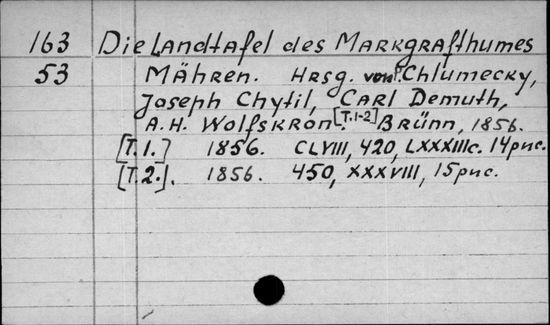 163 Die Landtafel des Markgrafthumes
53 Mähren. Hrsg. von P. Chlumecky,
Joseph Chytil, Carl Demuth,
A.H. Wolfskron. [T.1-2] Brünn, 1856.
[T.1.] 1856. CLVIII, 420, LXXXIIIc. 14рис.
[T.2.]. 1856. 450, XXXVIII, 15рис.